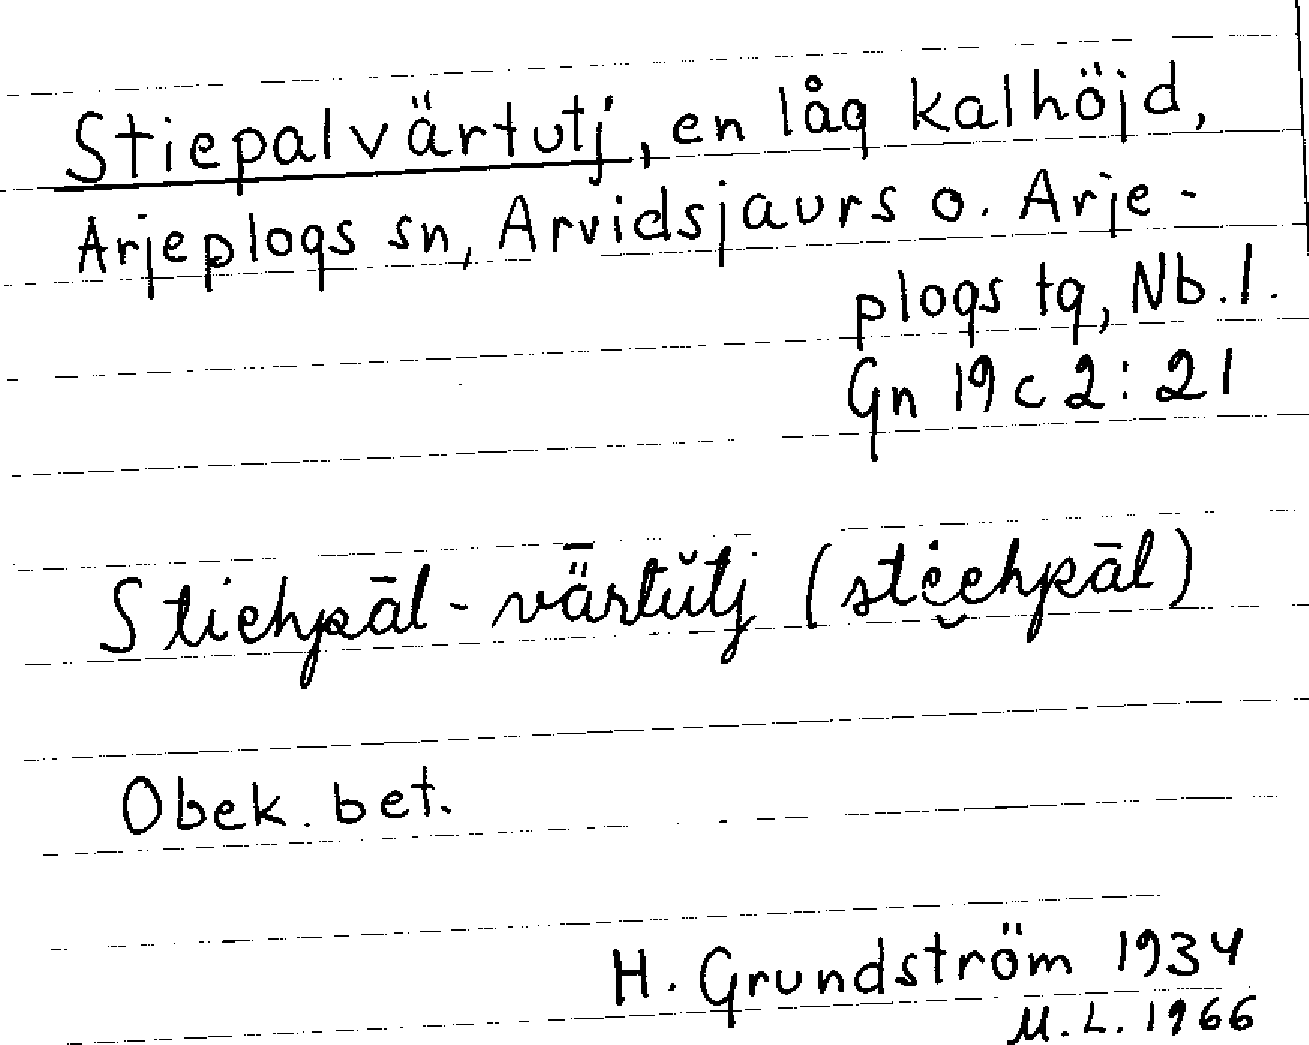 Stiepalvärtutj, en låg kalhöjd,
Arjeplogs sn, Arvidsjaurs o. Arje-
plogs tg, Nb. l.
Gn 19 c 2 : 21
Stiehpāl - vǟrtŭtj (stėehpāl)
Obek. bet.
H. Grundström 1934
M. L. 1966